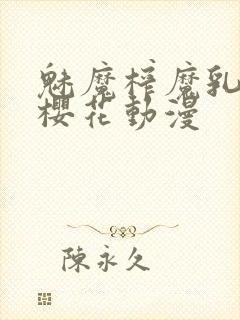 魅魔榨魔乳
櫻花動漫
陳永久